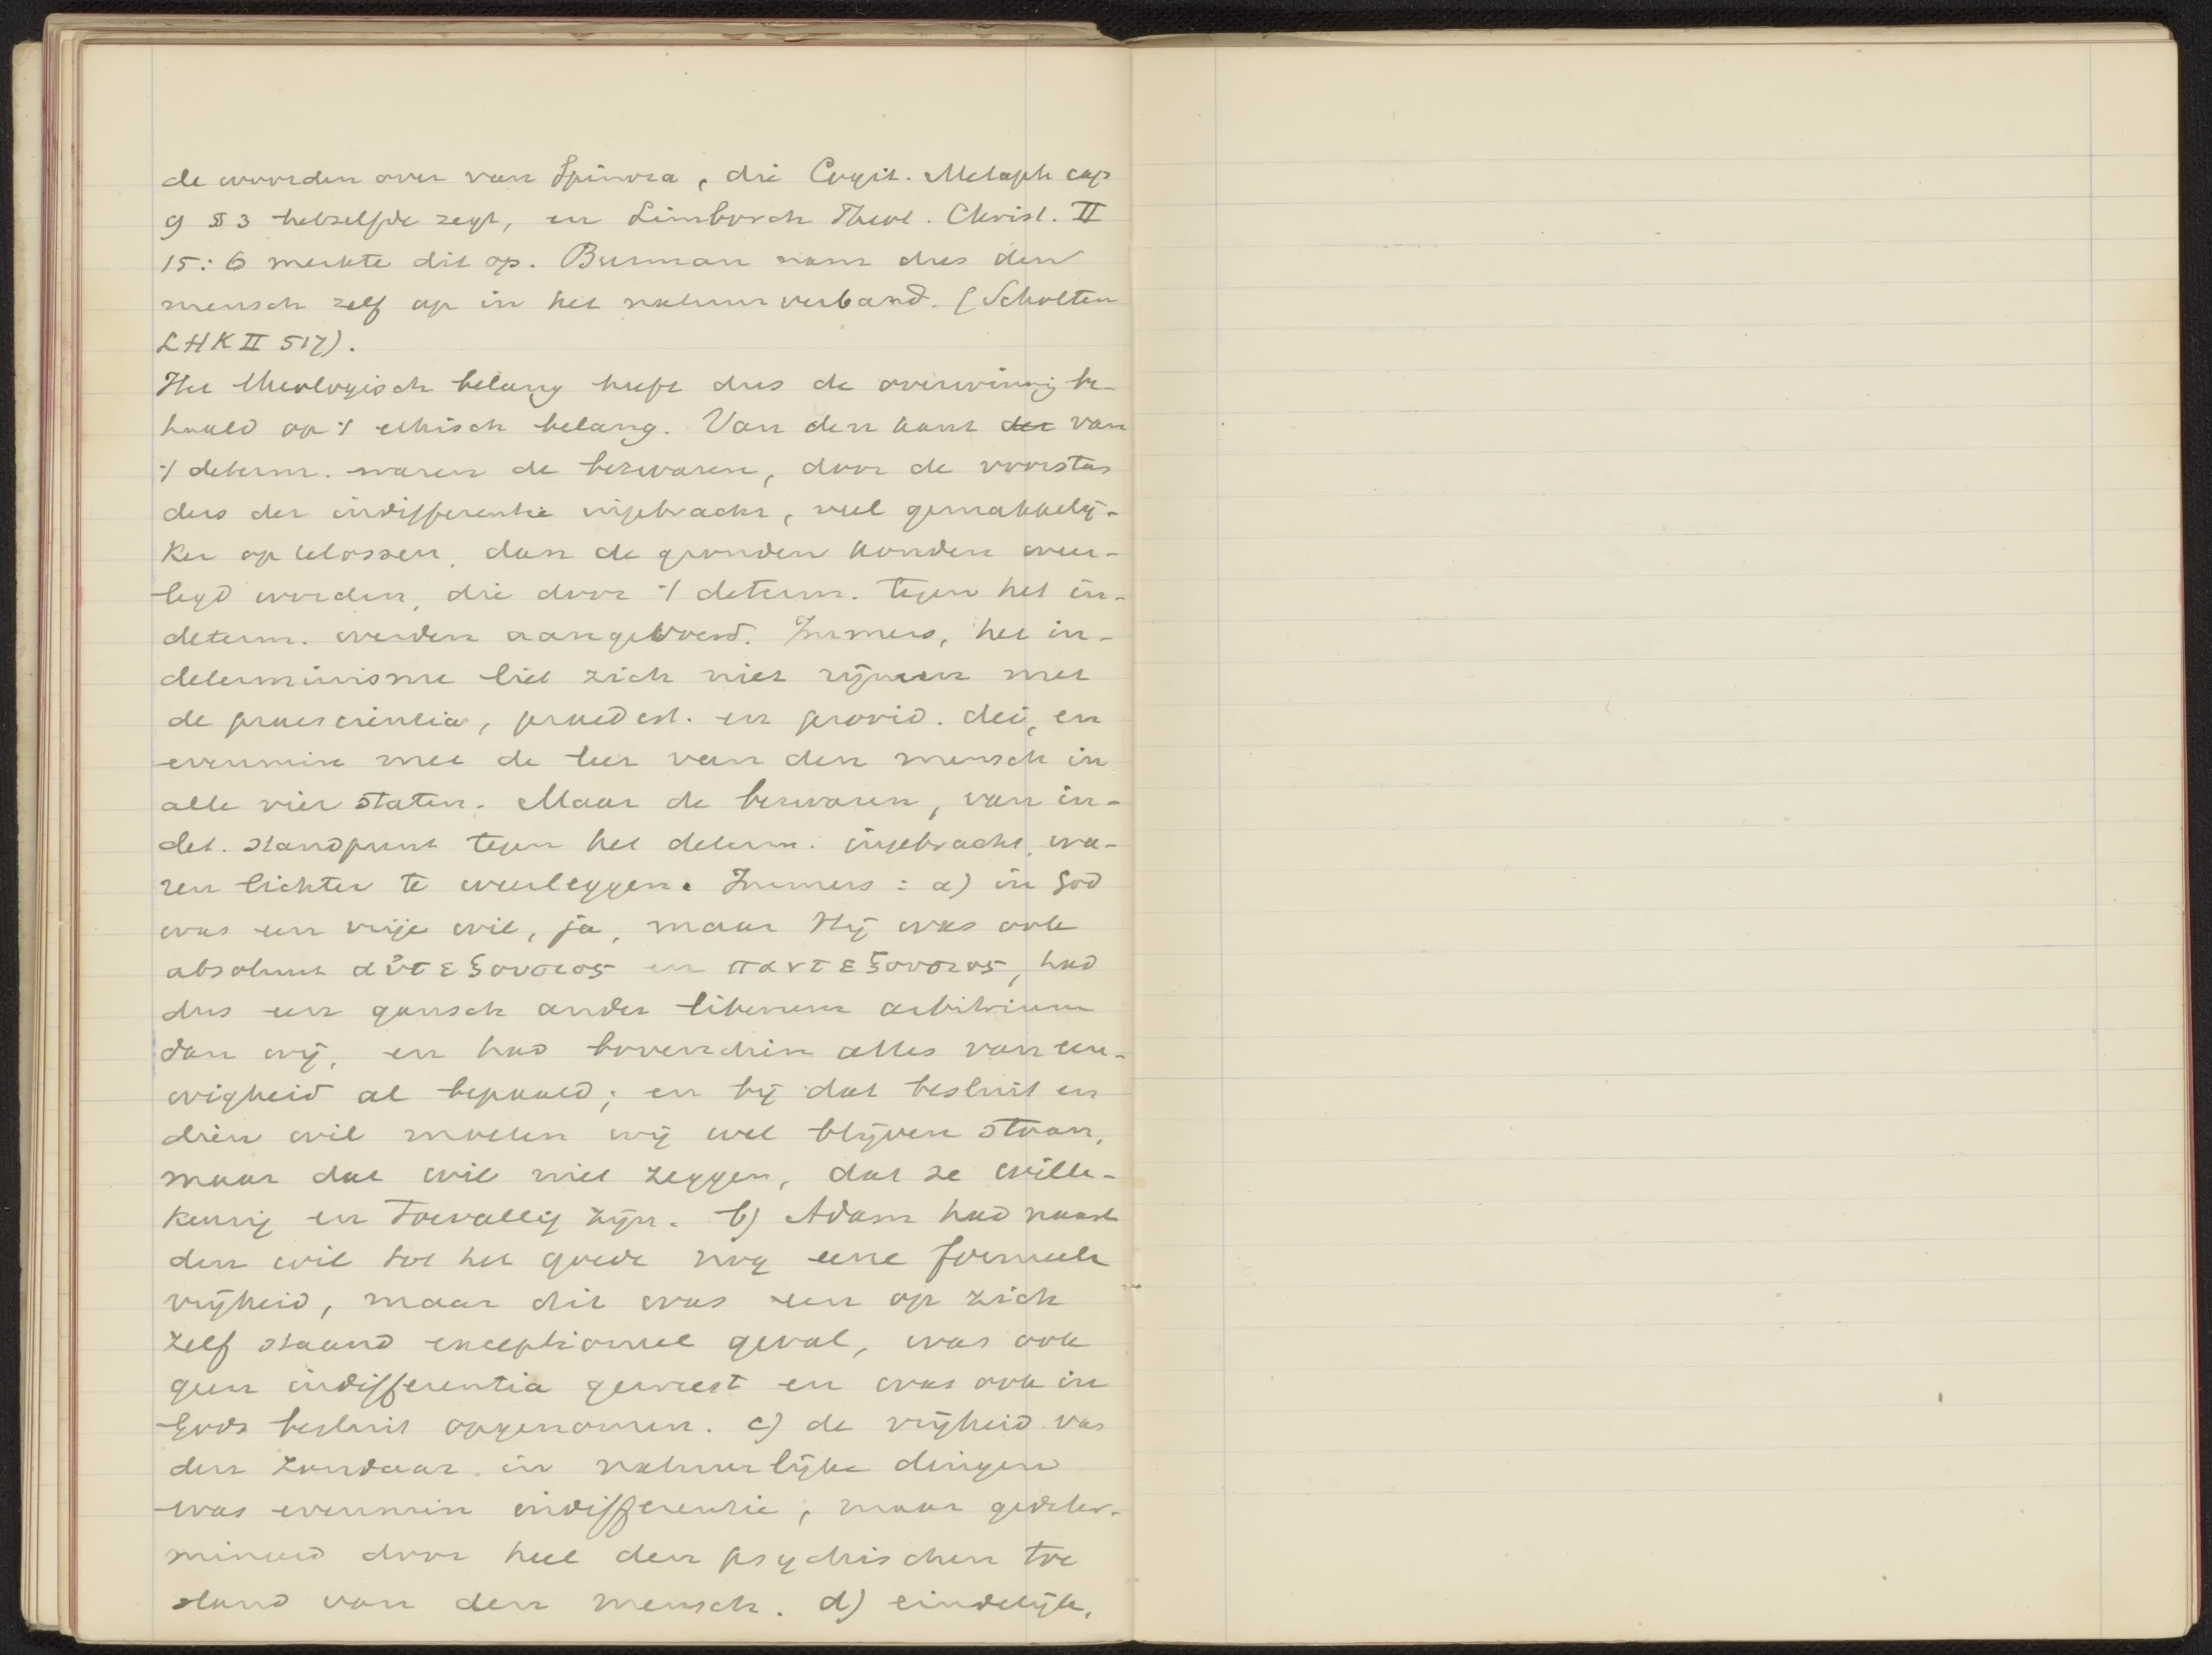 de woorden over van Spinoza, die Cogit. Metaph cap
9 § 3 hetzelfde zegt, en Limborch Theol. Christ. II
15:6 merkte dit op. Burman nam dus den
mensch zelf op in het natuurverband. (Scholten
LHK II 517).
Het theologisch belang heeft dus de overwinnig be-
haald op 't ethisch belang. Van den kant der van
't determ. waren de bezwaren, door de voorstan
ders der indifferentie ingebracht, veel gemakkelij-
ker op te lossen, dan de gronden konden weer-
legd worden, die door 't determ. tegen het in-
determ. werden aangevoerd. Immers, het in-
determinisme liet zich niet rijmen met
de praescientia, praedest. en provid. dei, en
evenmin met de leer van den mensch in
alle vier staten. Maar de bezwaren, van in-
det. standpunt tegen het determ. ingebracht, wa-
ren lichter te weerleggen. Immers: a) in God
was een vrije wil, ja, maar Hij was ook
absoluut αὐτεξουσιος en παντεξουσιος, had
dus een gansch ander liberum arbitrium
dan wij, en had bovendien alles van eeu-
wigheid al bepaald; en bij dat besluit en
dien wil moeten wij wel blijven staan,
maar dat wil niet zeggen, dat ze wille-
keurig en toevallig zijn. b) Adam had naast
den wil tot het goede nog eene formeele
vrijheid, maar dit was een op zich
zelf staand exceptioneel geval, was ook
geen indifferentia geweest en was ook in
Gods besluit opgenomen. c) de vrijheid van
den zondaar in natuurlijke dingen
was evenmin indifferentie, maar gedeter-
mineerd door heel den psychischen toe
stand van den mensch. d) eindelijk,